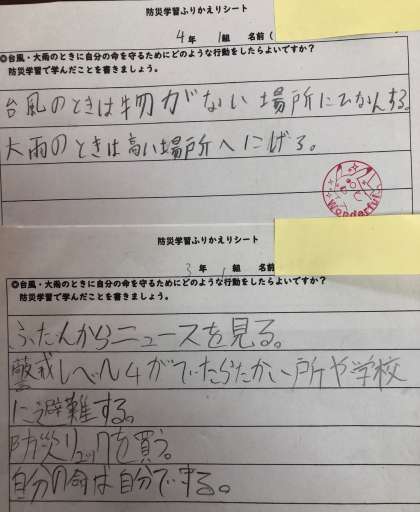 防災学習ふりかえりシート
4年 1組 名前(
◎台風・大雨のときに自分の命を守るためにどのような行動をしたらよいですか?
防災学習で学んだことを書きましょう。
台風のときは物がない場所にひなんする。
大雨のときは高い場所へにげる。
Wonderful
防災学習ふりかえりシート
3年 1組 名前
◎台風・大雨のときに自分の命を守るためにどのような行動をしたらよいですか?
防災学習で学んだことを書きましょう。
ふだんからニュースを見る。
警戒レベル4がでたらたかい所や学校
に避難する。
防災リュックを買う。
自分の命は自分でする。